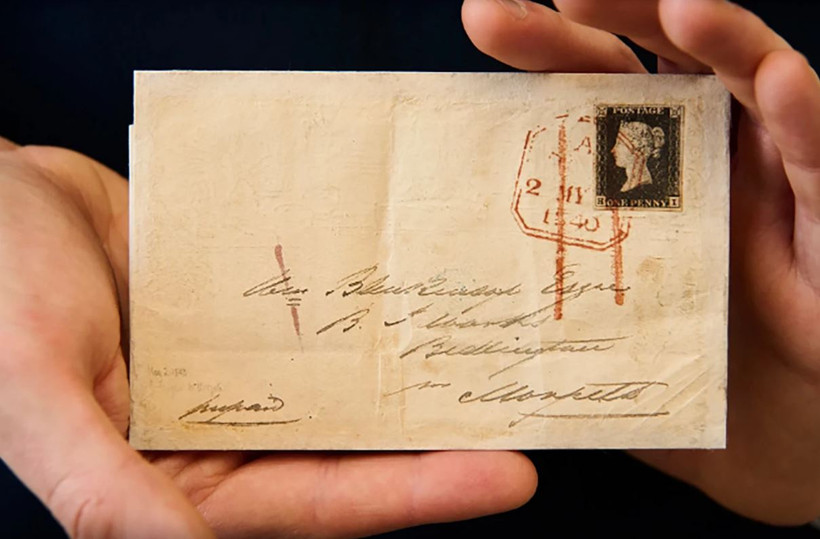 POSTAGE
ONE PENNY
A
2 MY
1840
Wm Blenkinsop Esqre
B. I. Works
Bedlington
nr Morpeth
prepaid